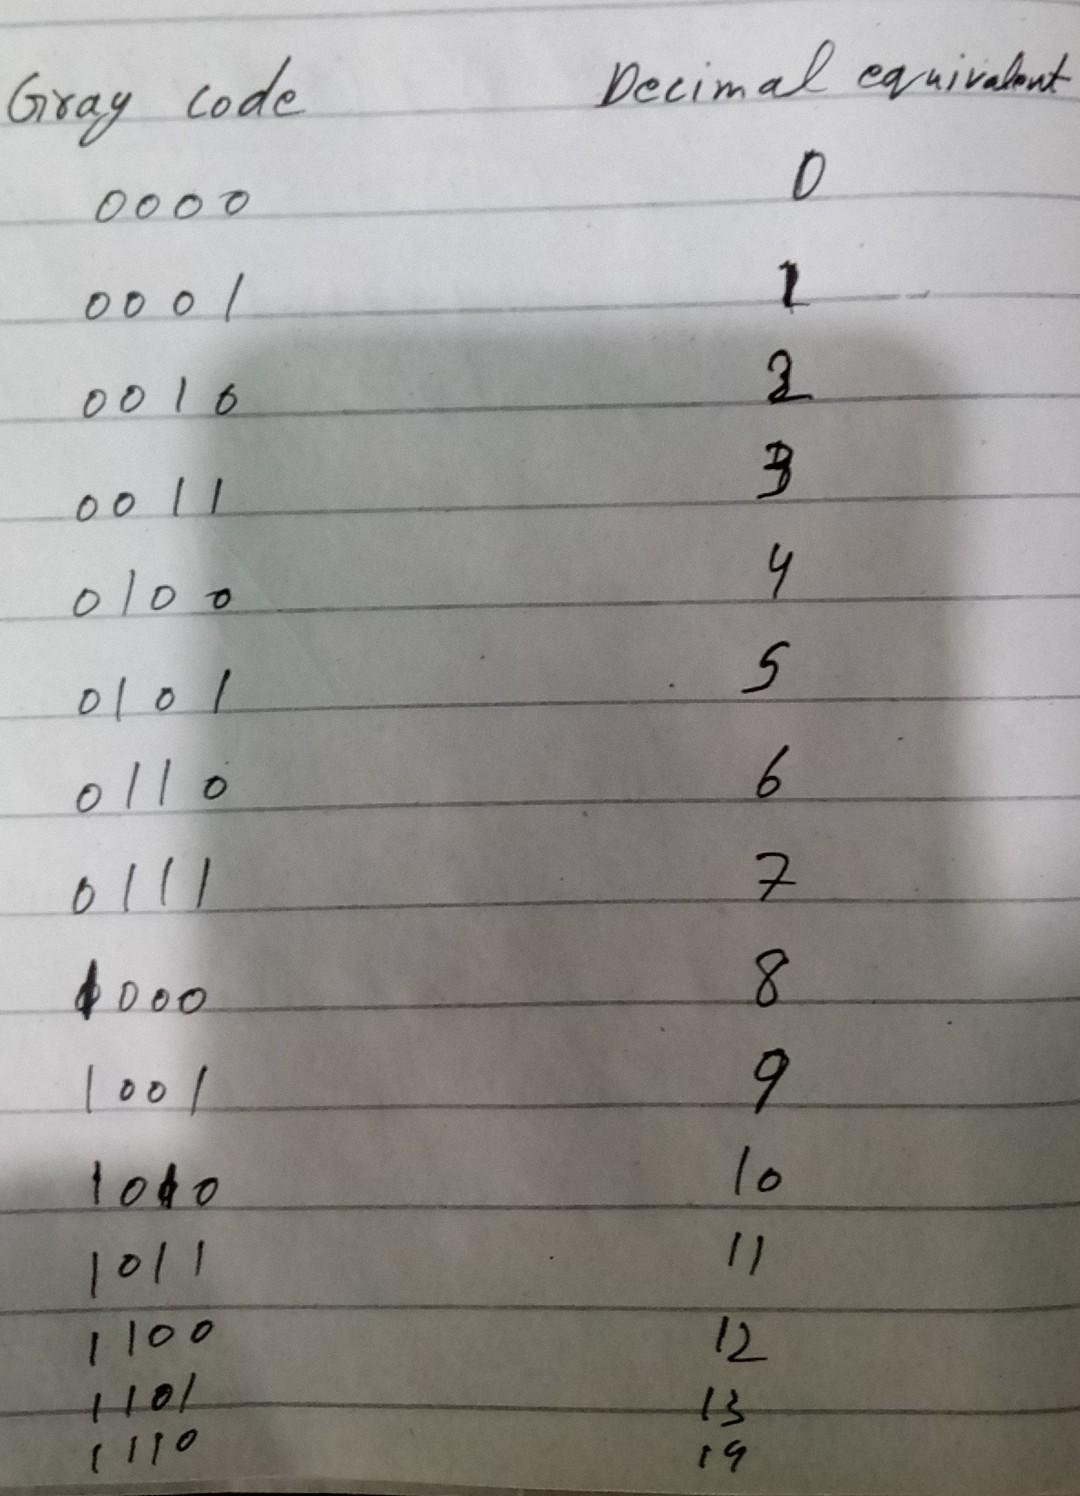 Gray code Decimal equivalent
0000 0
0001 1
0010 2
0011 3
0100 4
0101 5
0110 6
0111 7
1000 8
1001 9
1010 10
1011 11
1100 12
1101 13
1110 14